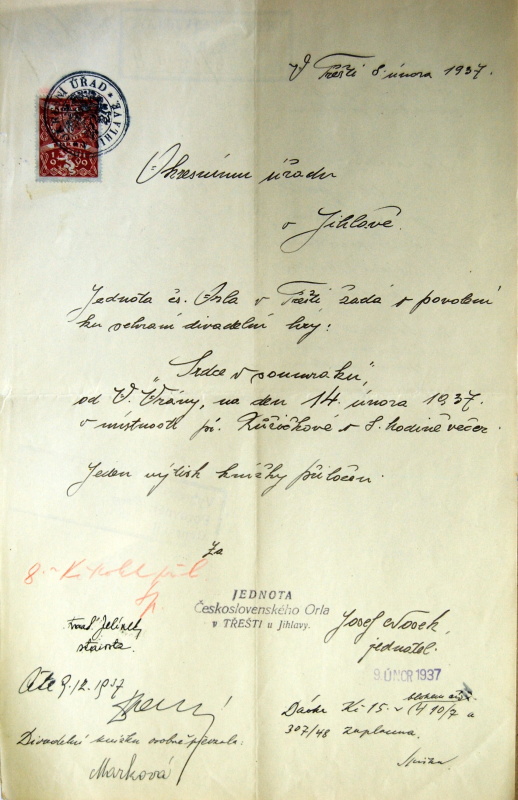 V Třešti 8 února 1937.
ÚŘAD
JIHLAVĚ
Okresnímu úřadu
v Jihlavě.
Jednota čs. Orla v Třešti žádá o povolení
ku sehraní divadelní hry:
"Srdce v soumraku"
od V. Vrány, na den 14. února 1937.
v místnosti pí. Růžičkové o 8. hodině večer.
Jeden výtisk knížky přiložen.
Za
8.- Kč kolek
JEDNOTA
Československého Orla
v TŘEŠTI u Jihlavy.
Jelínek
starosta
Josef Nosek,
jednatel.
9. ÚNOR 1937
Dávka Kč 15.- 10/7 a
307/48 zaplacena.
Divadelní knížku osobně převzala:
Marková